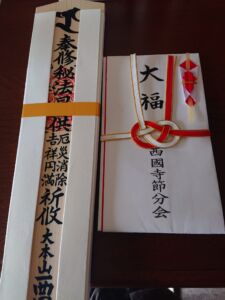 奉修秘法星供
厄災消除
吉祥円満
祈攸
大本山西
大福
西國寺節分会